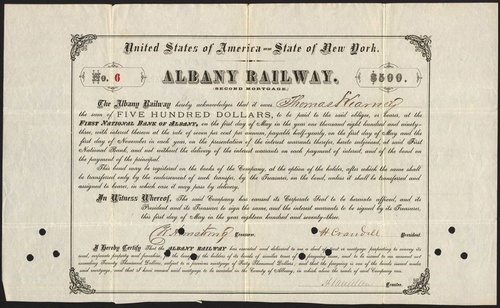 United States of America — State of New York.
No. 6
ALBANY RAILWAY.
$500.
(SECOND MORTGAGE.)
The Albany Railway hereby acknowledges that it owes Thomas
the sum of FIVE HUNDRED DOLLARS, to be paid to the said obligee, or bearer, at the
FIRST NATIONAL BANK OF ALBANY, on the first day of May in the year one thousand eight hundred and ninety-
three, with interest thereon at the rate of seven per cent per annum, payable half-yearly, on the first day of May and the
first day of November in each year, on the presentation of the interest warrants therefor, hereto subjoined, at said First
National Bank, and not without the delivery of the interest warrants on each payment of interest, and of the bond on
the payment of the principal.
This bond may be registered on the books of the Company, at the option of the holder, after which the same shall
be transferred only by the endorsement of such transfer, by the Treasurer, on the bond, unless it shall be transferred and
assigned to bearer, in which case it may pass by delivery.
In Witness Whereof, The said Company has caused its Corporate Seal to be hereunto affixed, and its
President and its Treasurer to sign the same, and the interest warrants to be signed by its Treasurer, this
first day of May in the year eighteen hundred and seventy-three.
Treasurer.
President.
I Hereby Certify That the ALBANY RAILWAY has executed and delivered to me a deed of trust or mortgage purporting to convey its
Trustee.